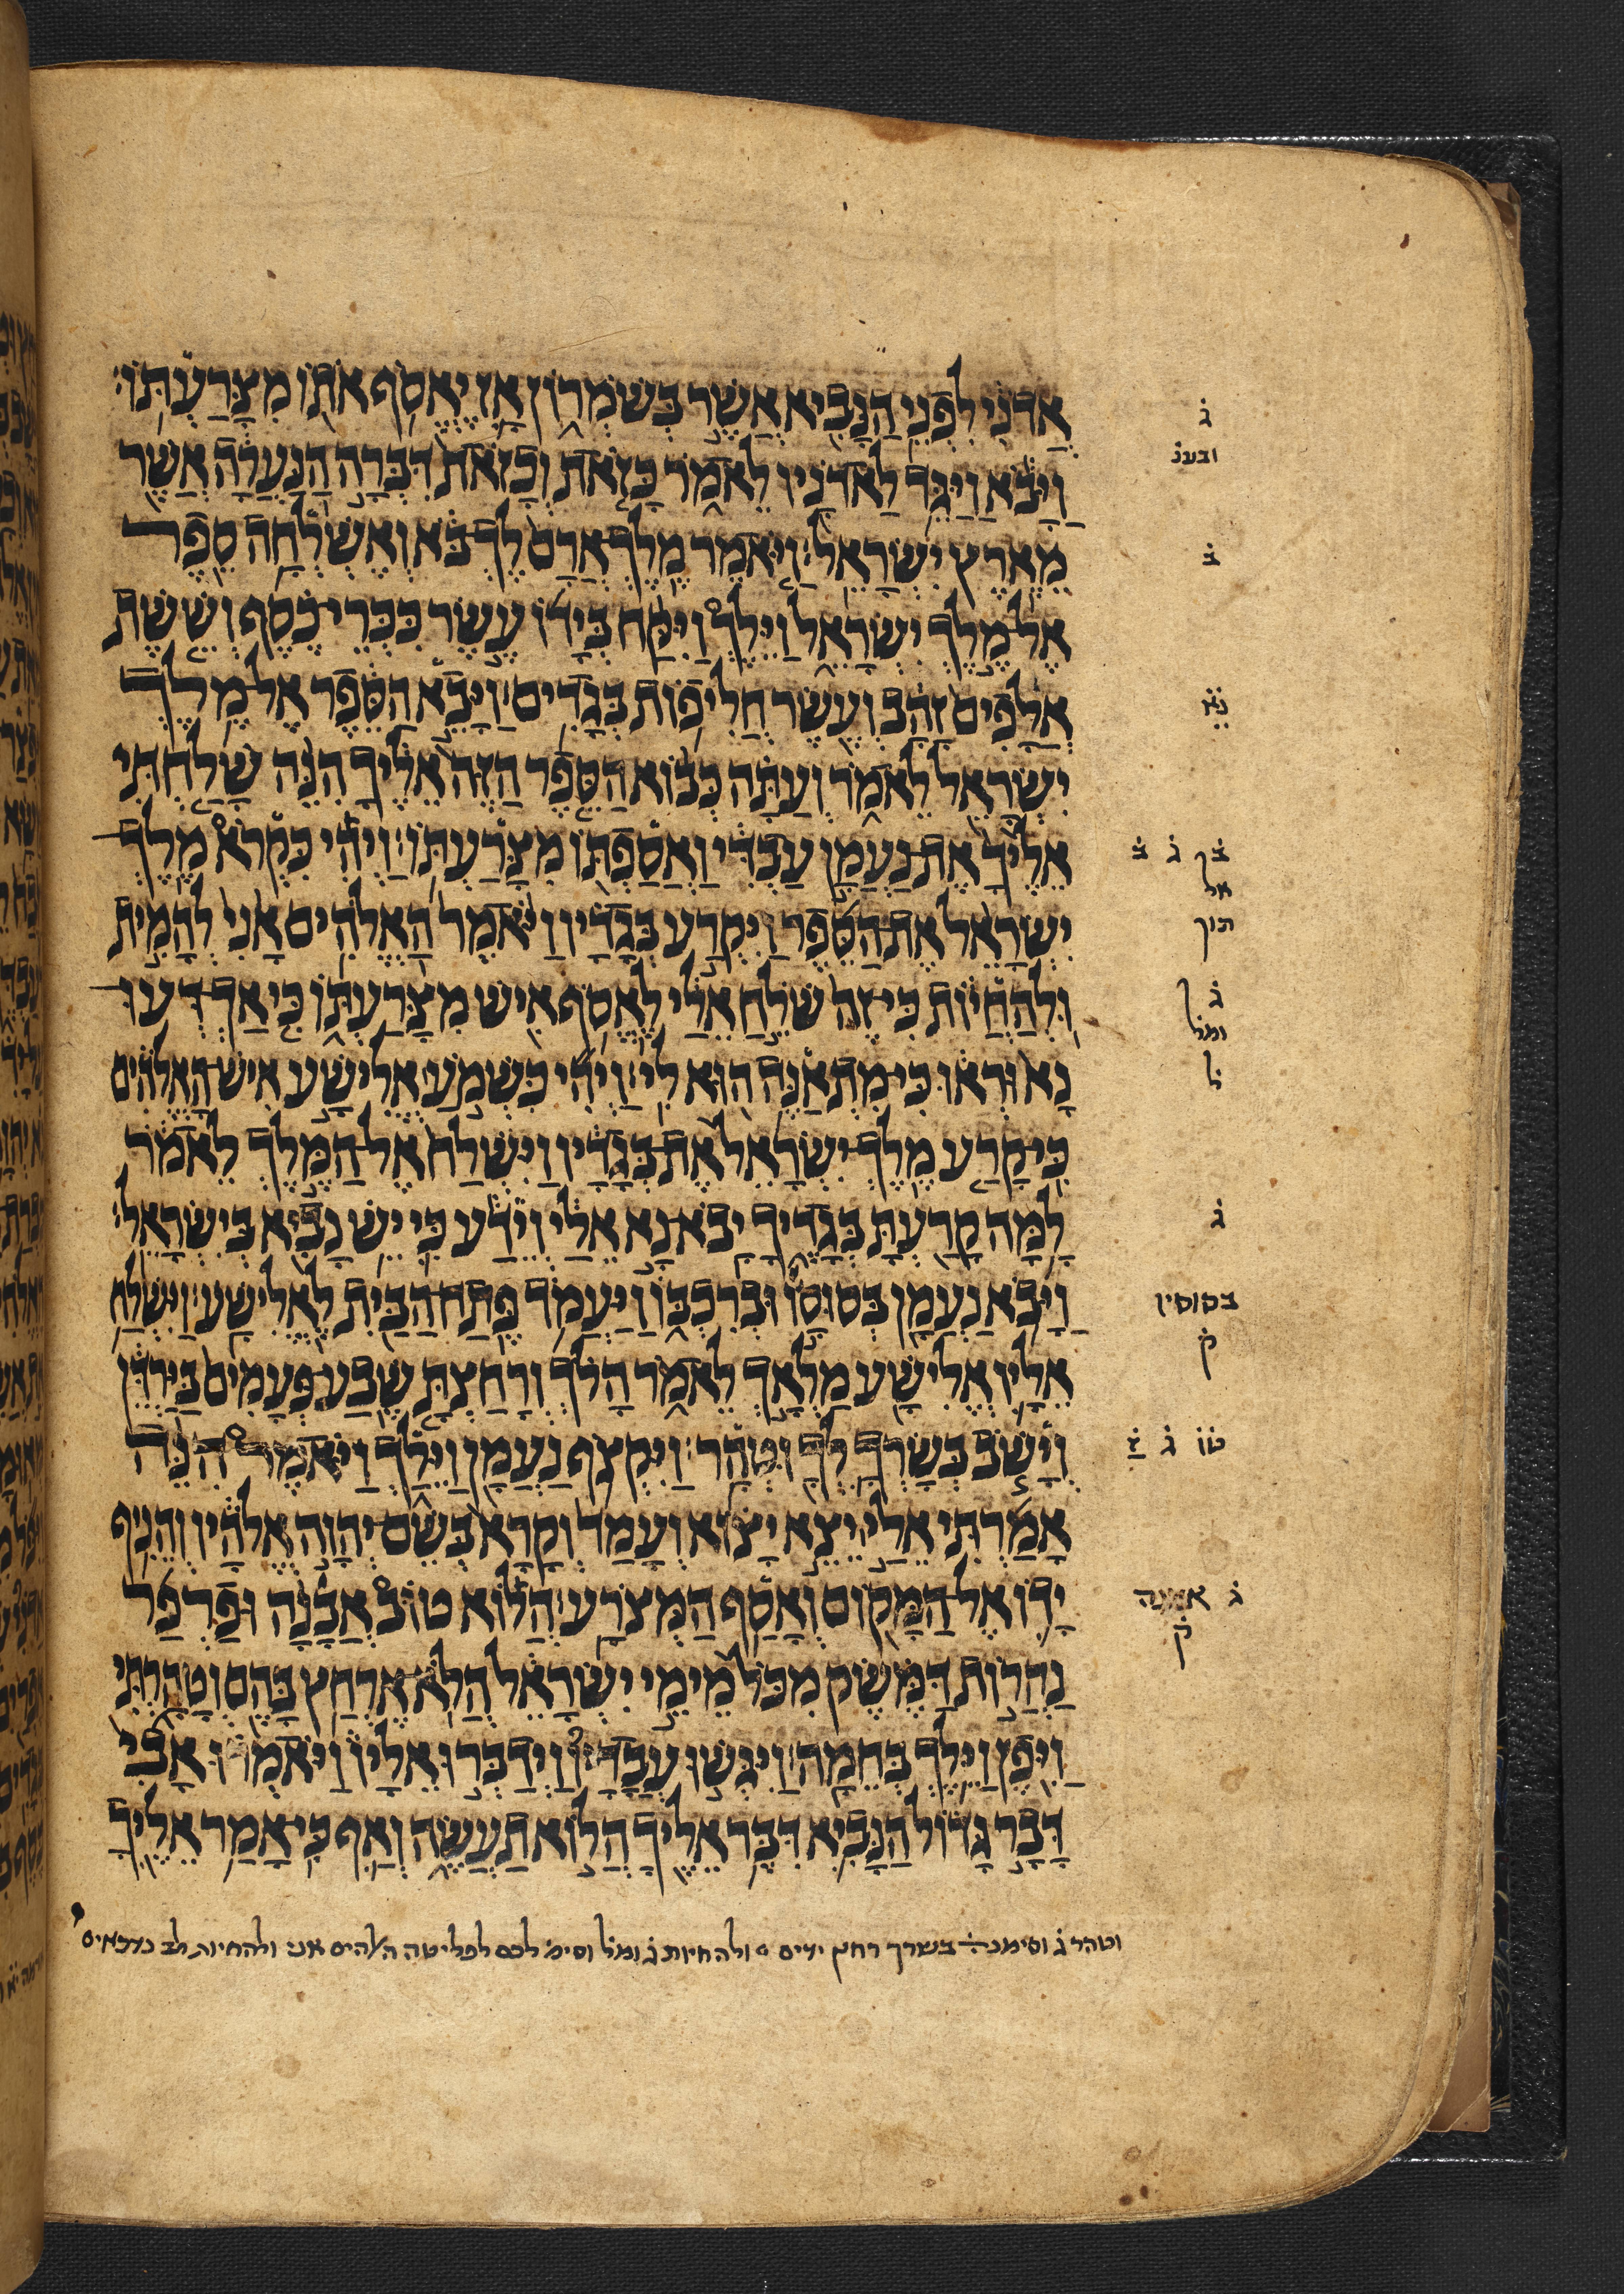 אֲדֹנִי לִפְנֵי הַנָּבִיא אֲשֶׁר בְּשֹׁמְרוֹן אָז יֶאֱסֹף אֹתוֹ מִצָּרַעְתּוֹ׃
וַיָּבֹא וַיַּגֵּד לַאדֹנָיו לֵאמֹר כָּזֹאת וְכָזֹאת דִּבְּרָה הַנַּעֲרָה אֲשֶׁר
מֵאֶרֶץ יִשְׂרָאֵל׃ וַיֹּאמֶר מֶלֶךְ אֲרָם לֶךְ בֹּא וְאֶשְׁלְחָה סֵפֶר
אֶל מֶלֶךְ יִשְׂרָאֵל וַיֵּלֶךְ וַיִּקַּח בְּיָדוֹ עֶשֶׂר כִּכְּרֵי כֶסֶף וְשֵׁשֶׁת
אֲלָפִים זָהָב וְעֶשֶׂר חֲלִיפוֹת בְּגָדִים׃ וַיָּבֵא הַסֵּפֶר אֶל מֶלֶךְ
יִשְׂרָאֵל לֵאמֹר וְעַתָּה כְּבוֹא הַסֵּפֶר הַזֶּה אֵלֶיךָ הִנֵּה שָׁלַחְתִּי
אֵלֶיךָ אֶת נַעֲמָן עַבְדִּי וַאֲסַפְתּוֹ מִצָּרַעְתּוֹ׃ וַיְהִי כִּקְרֹא מֶלֶךְ
יִשְׂרָאֵל אֶת הַסֵּפֶר וַיִּקְרַע בְּגָדָיו וַיֹּאמֶר הַאֱלֹהִים אָנִי לְהָמִית
וּלְהַחֲיוֹת כִּי זֶה שֹׁלֵחַ אֵלַי לֶאֱסֹף אִישׁ מִצָּרַעְתּוֹ כִּי אַךְ דְּעוּ
נָא וּרְאוּ כִּי מִתְאַנֶּה הוּא לִי׃ וַיְהִי כִּשְׁמֹעַ אֱלִישָׁע אִישׁ הָאֱלֹהִים
כִּי קָרַע מֶלֶךְ יִשְׂרָאֵל אֶת בְּגָדָיו וַיִּשְׁלַח אֶל הַמֶּלֶךְ לֵאמֹר
לָמָּה קָרַעְתָּ בְּגָדֶיךָ יָבֹא נָא אֵלַי וְיֵדַע כִּי יֵשׁ נָבִיא בְּיִשְׂרָאֵל׃
וַיָּבֹא נַעֲמָן בְּסוּסָו וּבְרִכְבּוֹ וַיַּעֲמֹד פֶּתַח הַבַּיִת לֶאֱלִישָׁע׃ וַיִּשְׁלַח
אֵלָיו אֱלִישָׁע מַלְאָךְ לֵאמֹר הָלֹךְ וְרָחַצְתָּ שֶׁבַע פְּעָמִים בַּיַּרְדֵּן
וְיָשֹׁב בְּשָׂרְךָ לְךָ וּטְהָר׃ וַיִּקְצֹף נַעֲמָן וַיֵּלַךְ וַיֹּאמֶר הִנֵּה
אָמַרְתִּי אֵלַי יֵצֵא יָצוֹא וְעָמַד וְקָרָא בְּשֵׁם יְהוָה אֱלֹהָיו וְהֵנִיף
יָדוֹ אֶל הַמָּקוֹם וְאָסַף הַמְּצֹרָע׃ הֲלוֹא טוֹב אֲבָנָה וּפַרְפַּר
נַהֲרוֹת דַּמֶּשֶׂק מִכֹּל מֵימֵי יִשְׂרָאֵל הֲלֹא אֶרְחַץ בָּהֶם וְטָהָרְתִּי
וַיִּפֶן וַיֵּלֶךְ בְּחֵמָה׃ וַיִּגְּשׁוּ עֲבָדָיו וַיְדַבְּרוּ אֵלָיו וַיֹּאמְרוּ אָבִי
דָּבָר גָּדוֹל הַנָּבִיא דִּבֶּר אֵלֶיךָ הֲלוֹא תַעֲשֶׂה וְאַף כִּי אָמַר אֵלֶיךָ
ג
ב
ג
ומל
ל
ג
בסוסיו
ק
ג
ק
וטהר ג וסימנ בשרך רחץ ולהחיות ג ומל וסימ לכם לפליטה האלהים אני ולהחיות לב נדכאים